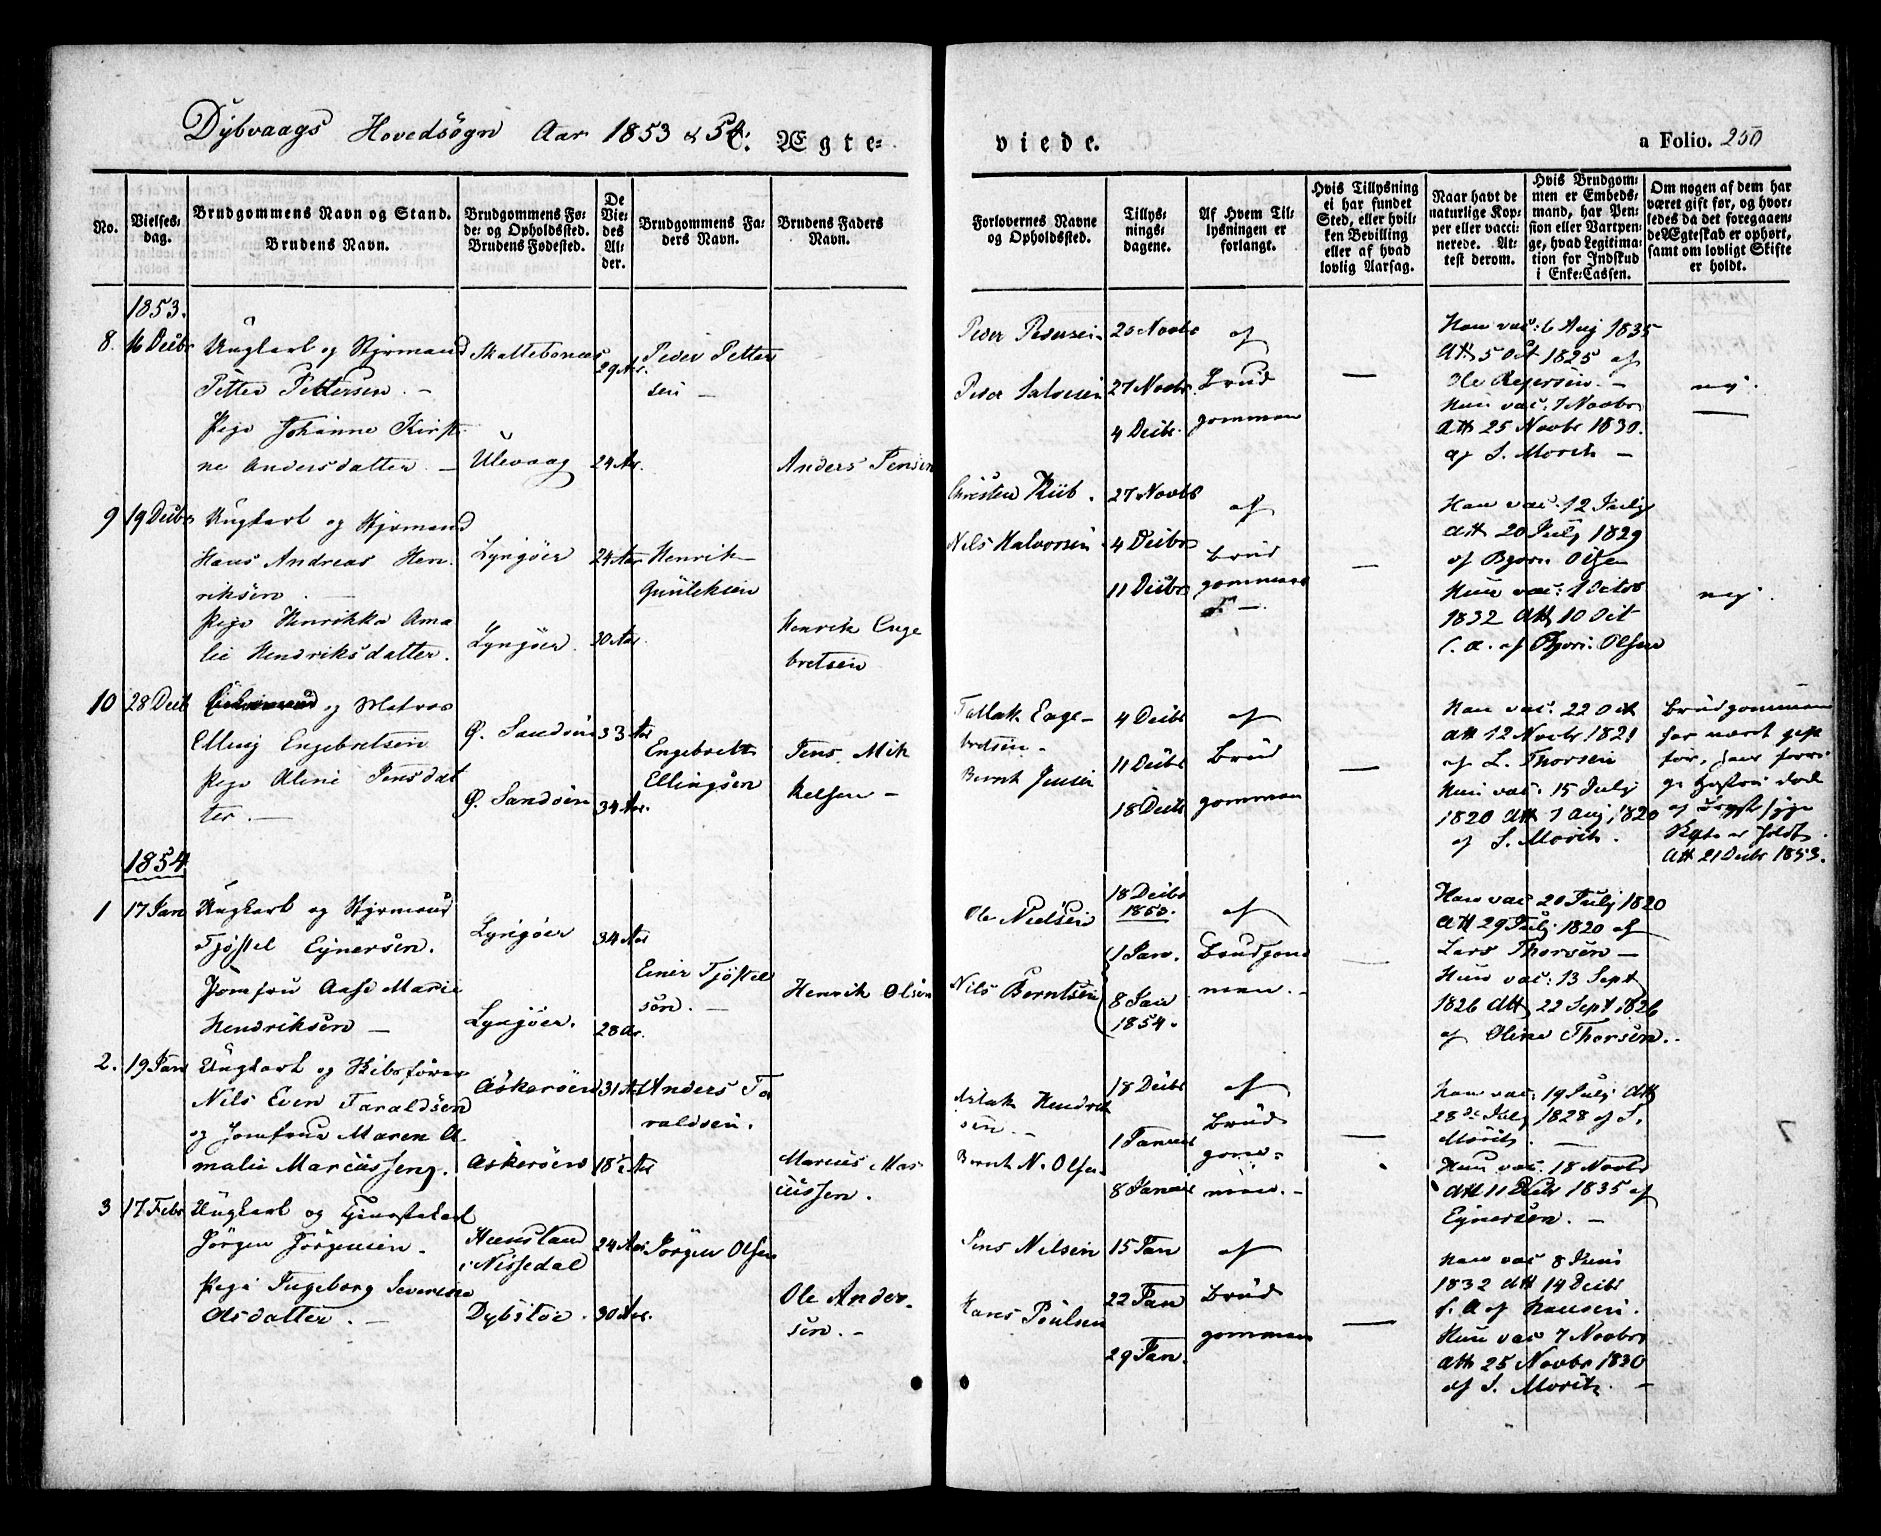 Dybvaags Hovedsøgn Aar 1853 & 54. Ægte=
viede. a Folio. 250
No.
Vielses=
dag.
Brudgommens Navn og Stand.
Brudens Navn.
Brudgommens Fø=
de= og Opholdssted.
Brudens Fødested.
De
Vie=
des
Al=
der.
Brudgommens Fa=
ders Navn.
Brudens Faders
Navn.
Forlovernes Navne
og Opholdssted.
Tillys=
nings=
dagene.
Af Hvem Til=
lysningen er
forlangt.
Hvis Tillysning
ei har fundet
Sted, eller hvil=
ken Bevilling
eller af hvad
lovlig Aarsag.
Naar havt de
naturlige Kop=
per eller vacci=
nerede. At=
test derom.
Hvis Brudgom=
men er Embeds=
mand, har Pen=
sion eller Vartpen=
ge, hvad Legitima=
tion for Indskud
i Enke=Cassen.
Om nogen af dem har
været gift før, og hvor=
ledes da det foregaaen=
de Ægteskab er ophørt,
samt om lovligt Skifte
er holdt.
1853.
8. 16 Decbr
Ungkarl og Styrmand
Petter Pettersen. —
Pige Johanne Kirsti
ne Andersdatter. —
Ulevaag
29 Ar.
24 Aar.
Peder Petter
sen —
Anders Jensen
Peder Pedersen
Peder Salvesen
20 Novbr
27 Novbr.
4 Decbr.
af
Brud
gommen
—
Han vac: 6 Aug 1835
Att 5 Oct 1825 af
Ole Reyersen. —
Hun vac: 7 Novbr
Att 25 Novbr 1830.
af S. Moritz —
nej.
9 19 Decbr
Ungkarl og Styrmand
Hans Andreas Hen
riksen. —
Pige Henrikka Ama
lie Hendriksdatter.
Lyngøer
Lyngøer.
24 Aar
30 Aar.
Henrik
Gunleksen
Henrik Enge
bretsen
Christen Kiib.
Nils Halvorsen
27 Novbr
4 Decbr
11 Decbr
af
Brud
gommen
—
Han vac: 12 July
Att 20 July 1829
af Bjørn Olsen
Hun vac: 1 Octbr
1832 Att 10 Oct
s. a. af Bjørn Olsen
nej.
10 28 Decb
og Matros
Elling Engebretsen
Pige Aline Jensdat
ter. —
Ø. Sandøen
Ø. Sandøen
33 Aar
34 Aar.
Engebrett
Ellingsen
Jens Mik
kelsen —
Tallak Enge
bretsen —
Bernt Jensen
4 Decbr
11 Decbr
18 Decbr
af
Brud
gommen
—
Han vac: 22 Oct
Att 12 Novbr 1821
af L. Thorsen
Hun vac: 15 July
1820 Att 7 Aug. 1820
af S. Moritz.
Brudgommen
har været gift
før, hans forri
ge Hustru døde
af Brystsyge
Skifte er holdt
Att 21 Decbr 1853.
1854
1 17 Jan
Ungkarl og Styrmand
Tjøstel Eynersen.
Jomfru Aase Marie
Hendriksen —
Lyngøer
Lyngøer.
34 Aar
28 Ar.
Einer Tjøstel
sen. —
Henrik Olsen
Ole Nielsen
Nils Berntsen
18 Decbr
1853.
1 Jan.
8 Jan
1854.
af
Brudgom
men. —
—
Han vac 20 July 1820
Att 29 July 1820 af
Lars Thorsen —
Hun vac: 13 Sept
1826 Att 22 Sept 1826
af Oline Thorsen.
2. 19 Jan
Ungkarl og Skibsfører
Nils Even Taraldsen
og Jomfrue Maren A
malie Marcussen.
Askerøen
Askerøen
31 A
18½ Aar
Anders Ta
raldsen.
Marcus Mar
cussen.
Aslak Hendrik
sen —
Bernt N. Olsen
18 Decbr
1 Januar
8 Januar
af
Brud
gom=
men. —
—
Han vac: 19 July Att
28de July 1828 af S.
Moritz. —
Hun vac: 18 Novbr
Att 11 Decbr 1835 af
Eynersen. —
3 17 Febr
Ungkarl og Tjenestekarl
Jørgen Jørgensen.
Pige Ingeborg Severine
Olsdatter. —
i Nissedal
Dybstøe.
24 Aar
30 Aar.
Jørgen Olsen
Ole Ander
sen. —
Jens Nilsen
Hans Poulsen
15 Jan
22 Jan
29 Jan.
af
Brud
gommen
—
Han vac 8 Juni
1832 Att 14 Decbr
s. A af Hansen.
Hun vac 7 Novbr
Att 25 Novbr 1830
af S. Moritz. —